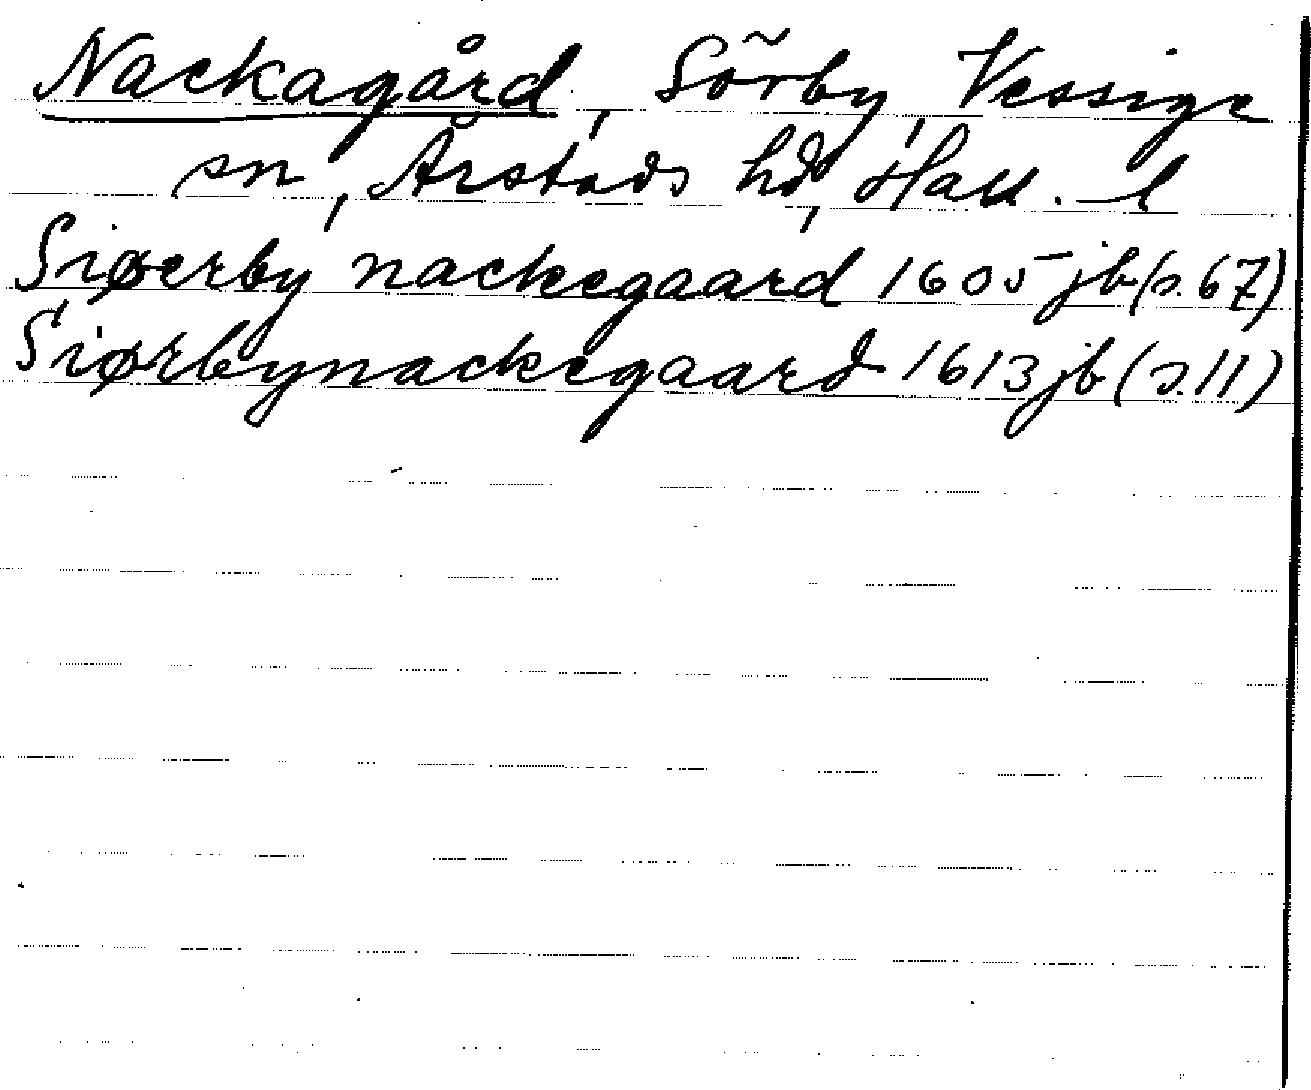 Nackagård, Sörby, Vessige
sn, Årstads hd, Hall. l
Siøerby nackegaard 1605 jb (s. 67)
Siørbynackegaard 1613 jb (s. 11)